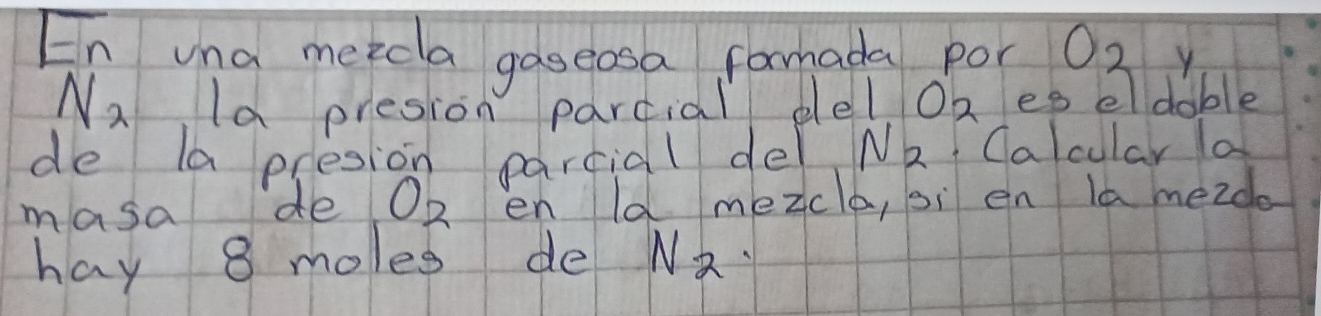 En una mezcla gaseosa formada por O2 y
N2 la presión parcial del O2 es el doble
de la presión parcial del N2. Calcular la
masa de O2 en la mezcla, si en la mezcla
hay 8 moles de N2.